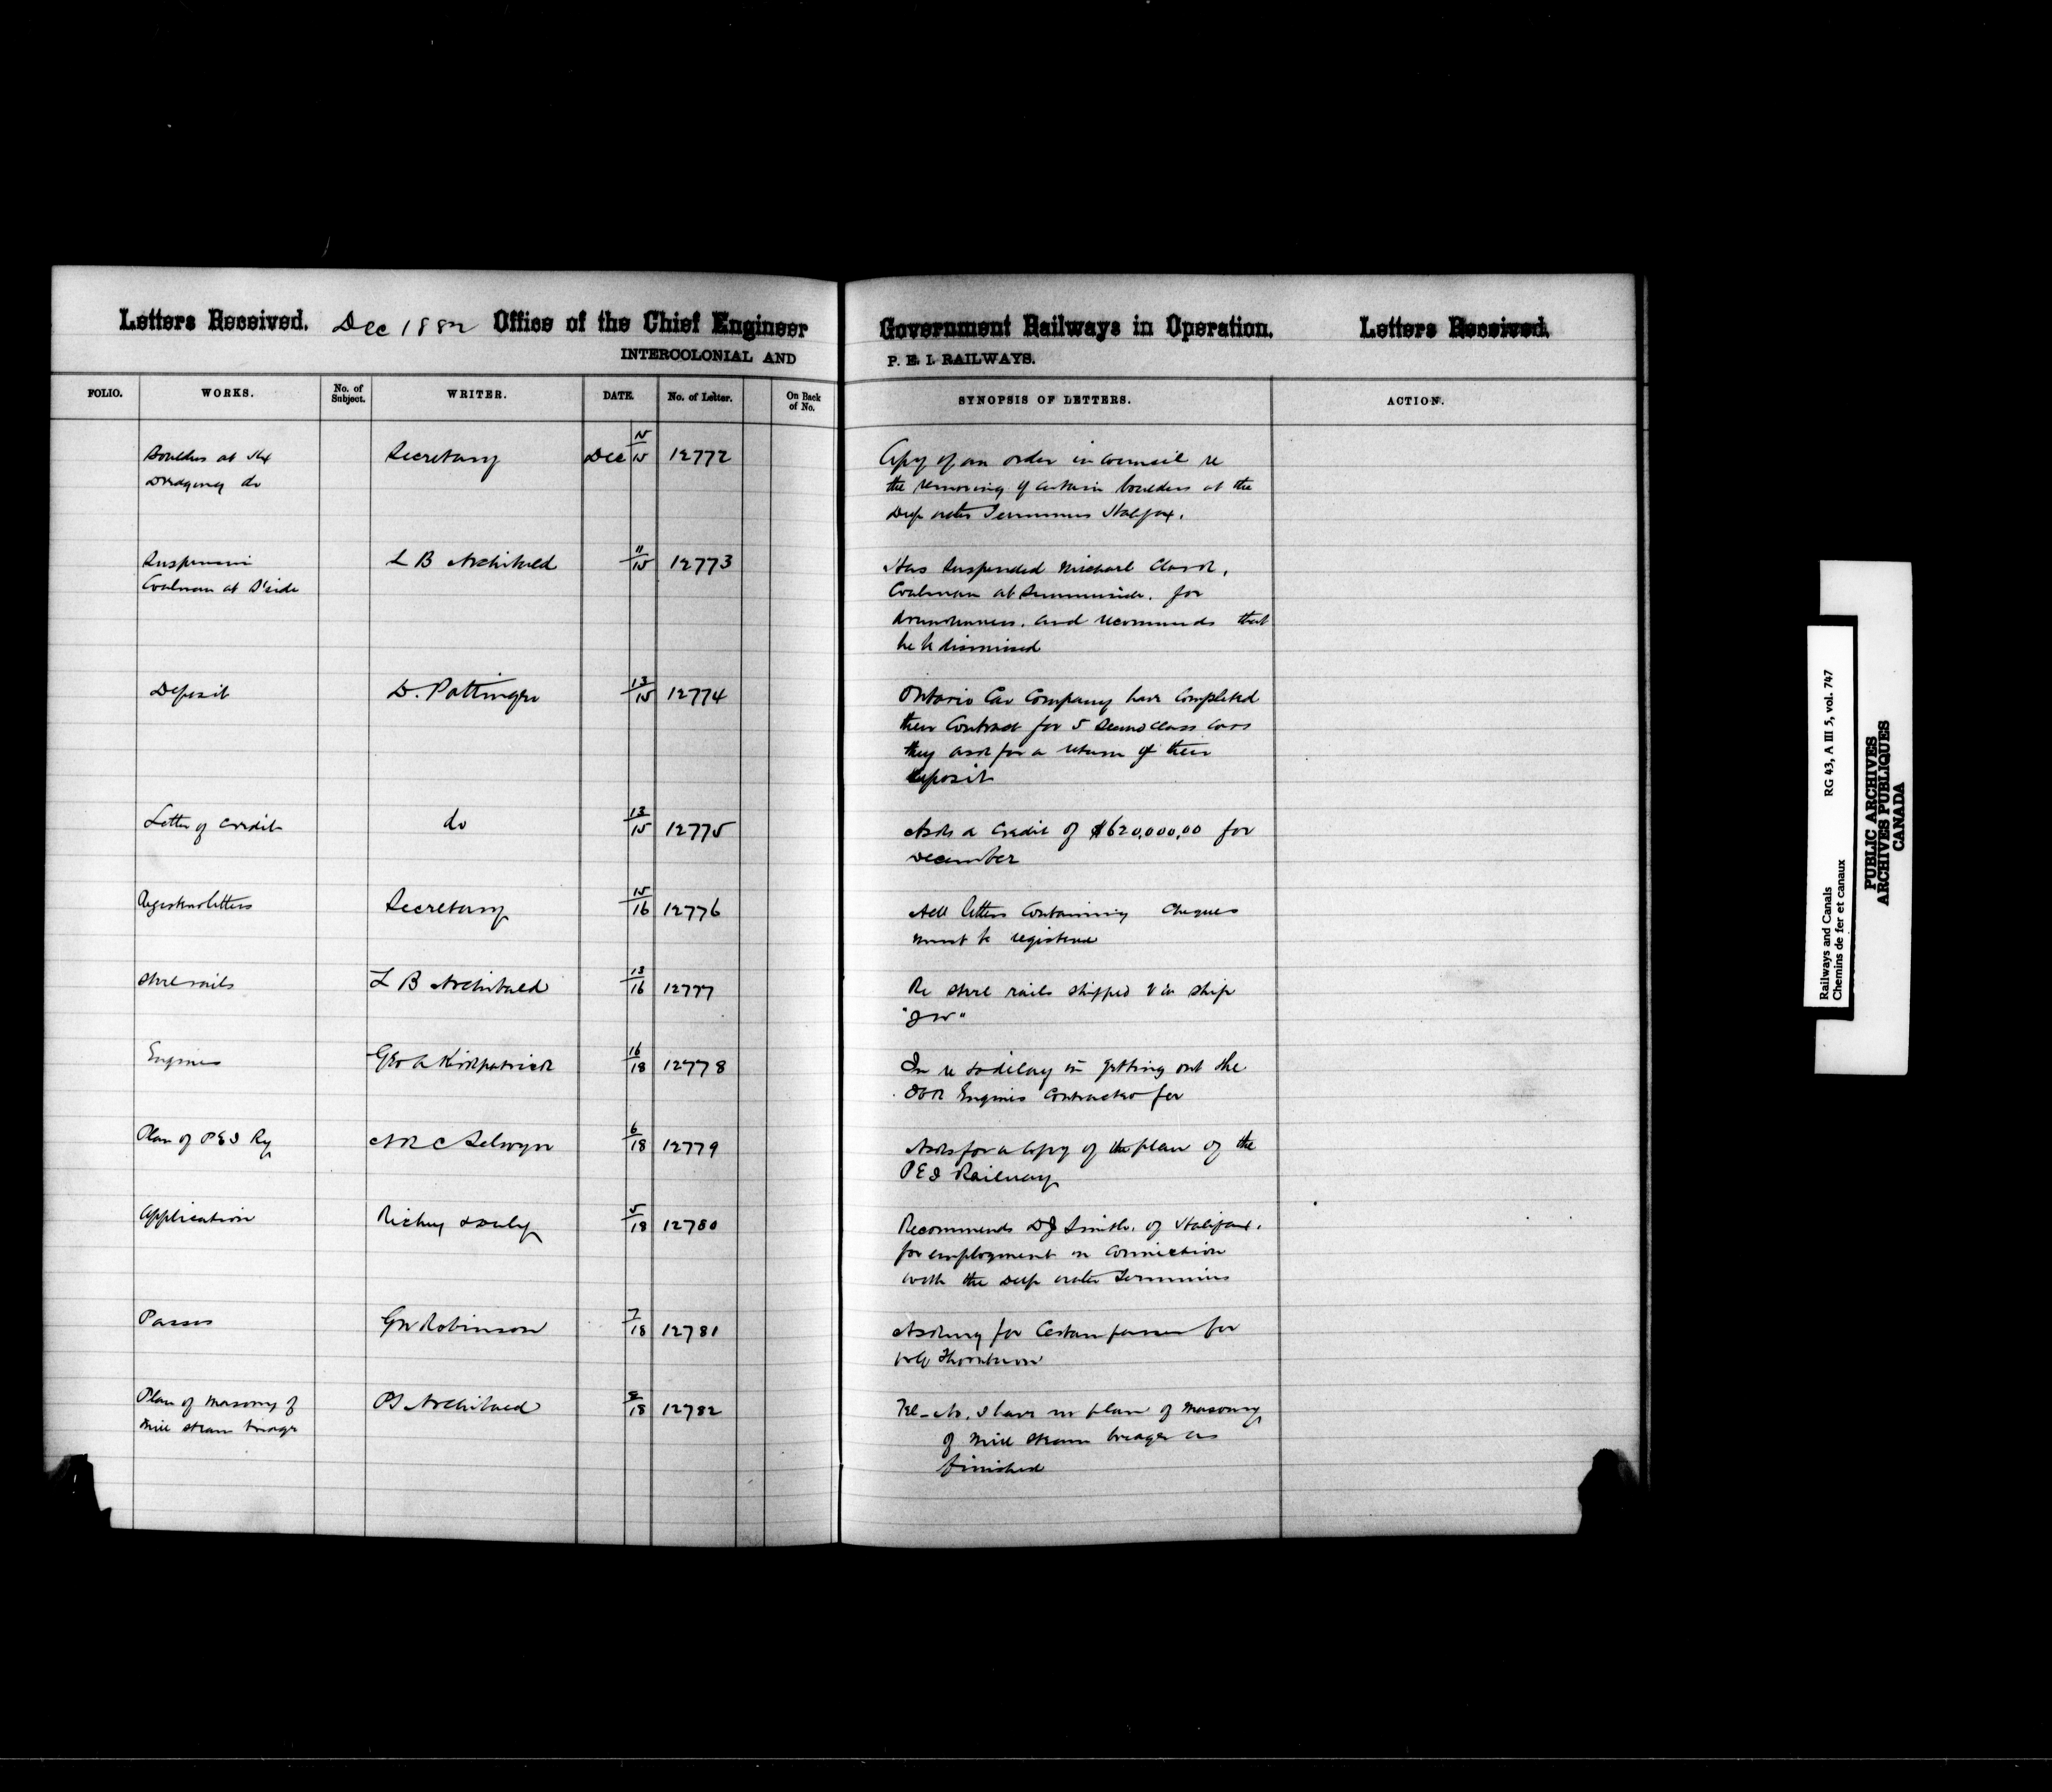 Letters Received. Dec 1882 Office of the Chief Engineer Government Railways in Operation. Letters Received.
INTERCOLONIAL AND P. E. I. RAILWAYS.
FOLIO. WORKS. No. of Subject. WRITER. DATE. No. of Letter. On Back of No. SYNOPSIS OF LETTERS. ACTION.
Boulders at Hx Secretary Dec 15/15 12772 Copy of an order in council re
Dredging do the removing of certain boulders at the
Deep water Terminus Halifax.
Suspension L B Archibald 11/15 12773 Has suspended Michael Clark,
Coalman at S'side Coalman at Summerside, for
drunkenness, and recommends that
he be dismissed
Deposit D. Pottinger 13/15 12774 Ontario Car Company have completed
their contract for 5 second class cars
they ask for a return of their
deposit
Letter of credit do 13/15 12775 Asks a credit of $620,000,00 for
December
Registered letters Secretary 15/16 12776 All letters containing cheques
must be registered
Steel rails L B Archibald 13/16 12777 Re steel rails shipped via ship
Engines Geo A Kirkpatrick 16/18 12778 In re to delay in getting out the
Engines contracted for
Plan of P E I Ry A R C Selwyn 6/18 12779 Asks for a copy of the plan of the
P E I Railway
Application Richey 5/18 12780 Recommends D J Smith, of Halifax,
for employment in connection
with the Deep water Terminus
Passes G W Robinson 7/18 12781 Asking for certain passes for
Plan of masonry of P S Archibald /18 12782 Tel - No, I have no plan of masonry
Mill stream bridge of Mill stream bridge as
finished
Railways and Canals RG 43, A III 5, vol. 747
Chemins de fer et canaux
PUBLIC ARCHIVES
ARCHIVES PUBLIQUES
CANADA